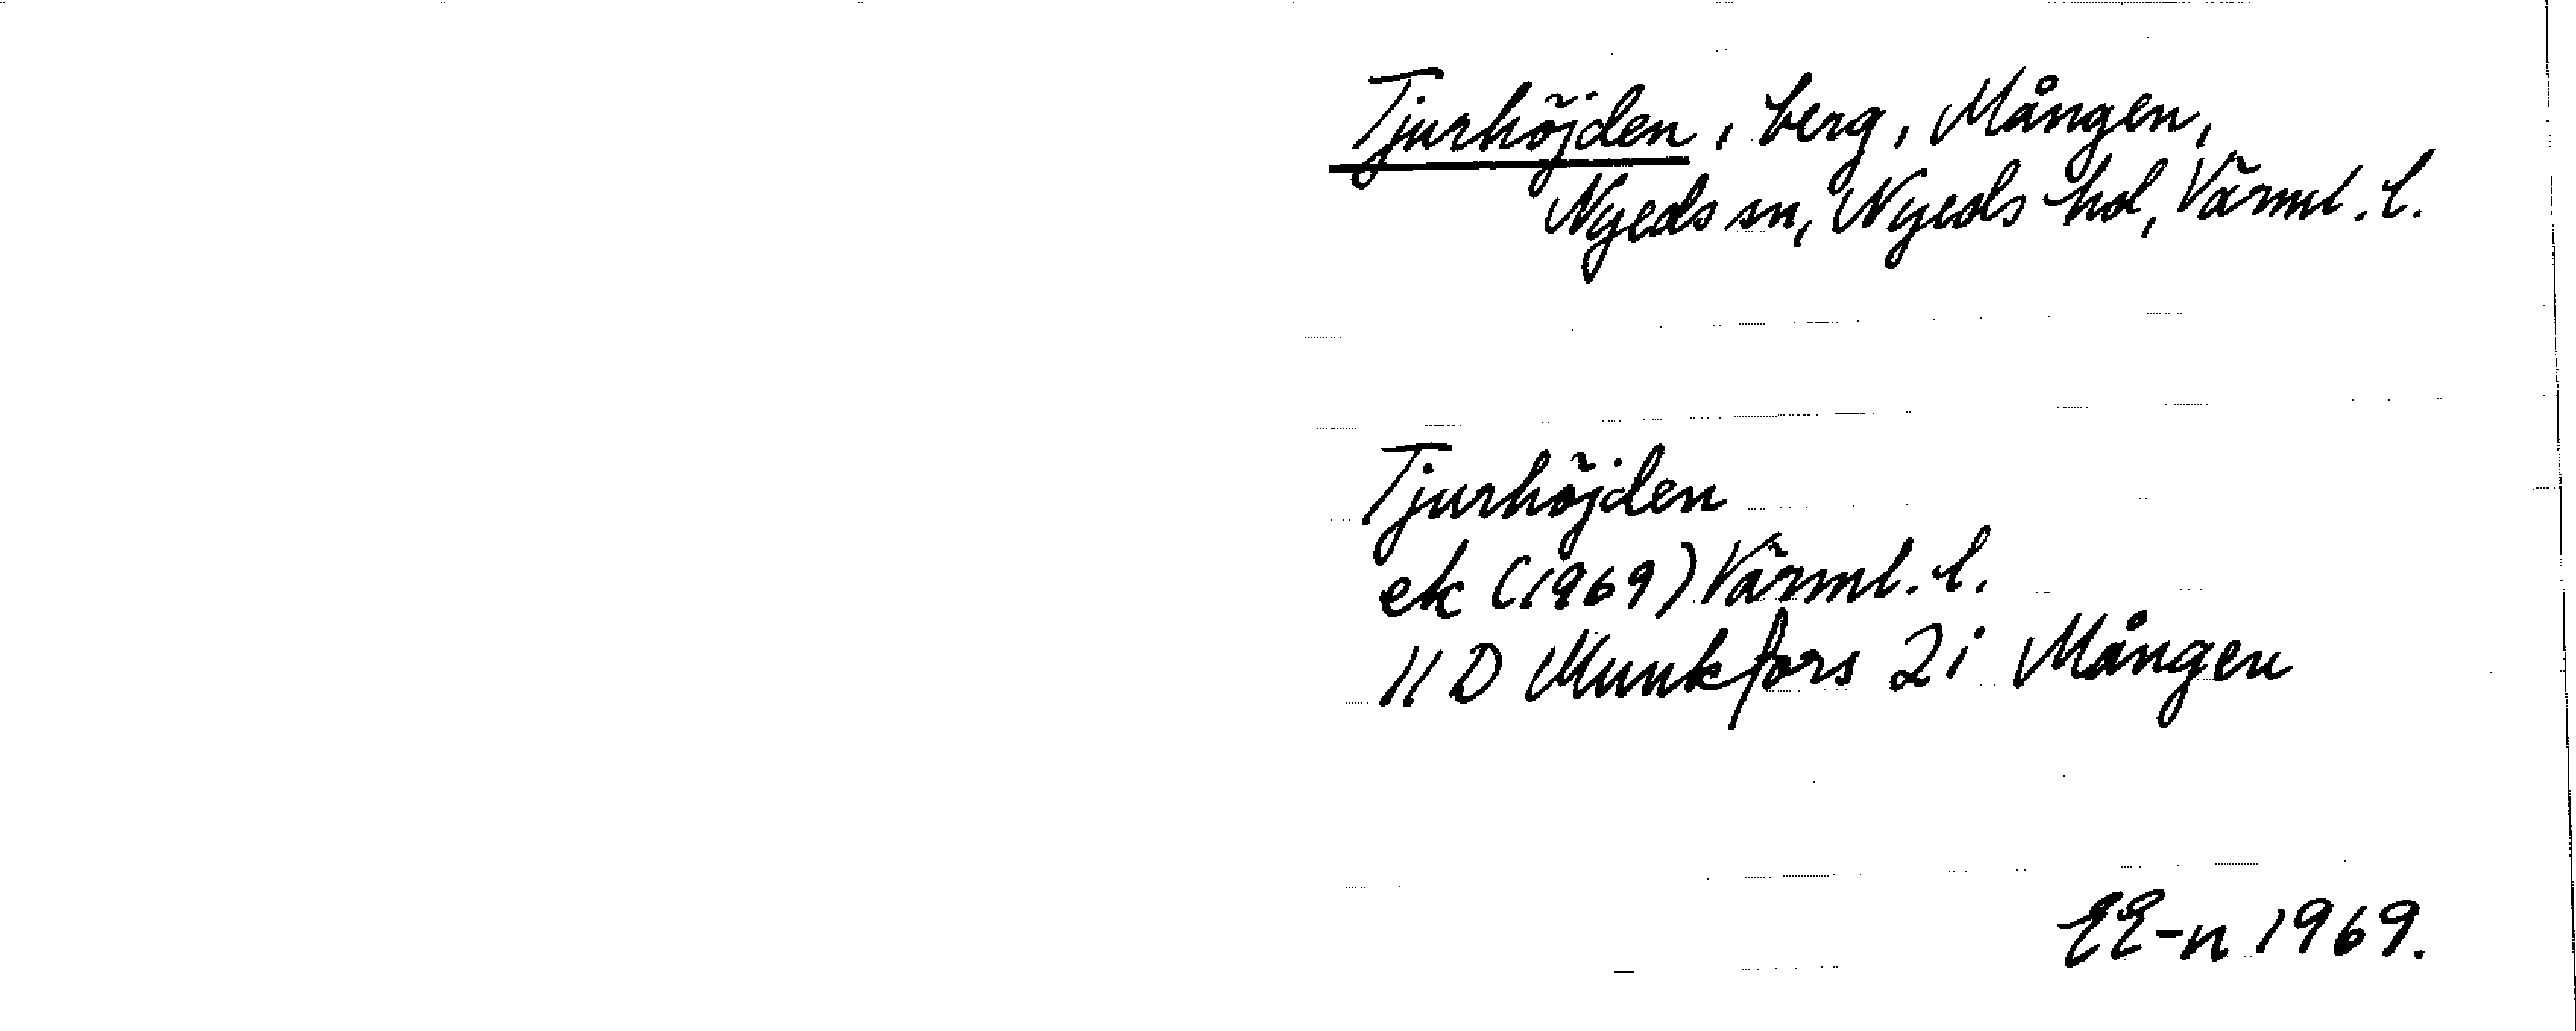 Tjurhöjden, berg, Mången,
Nyeds sn, Nyeds hd, Värml. l.
Tjurhöjden
ek (1969) Värml. l.
11 D Munkfors 2i Mången
EE-n 1969.